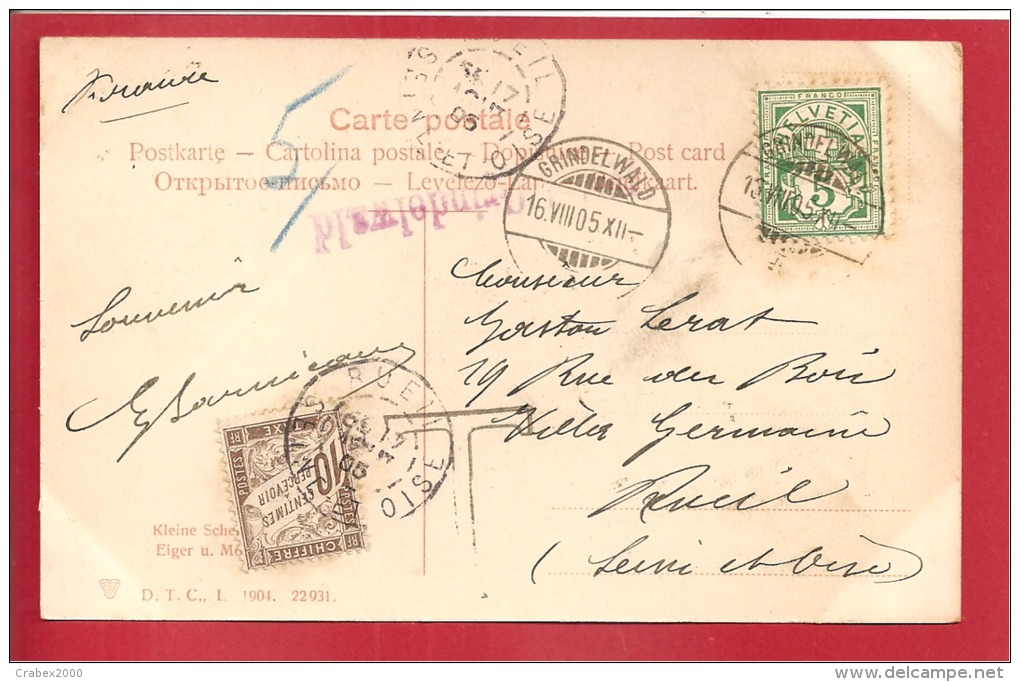 France
5
RUEIL
SEINE ET OISE
17
05
FRANCO
HELVETIA
5
Carte postale
Postkarte — Cartolina postale — Post card
Открытое письмо — Levelező-Lap
GRINDELWALD
16.VIII05.XII—
Grindelwald
Souvenir
Monsieur
Gaston Lerat
19 Rue du Bois
Villa Germaine
Rueil
(Seine et Oise)
T
RUEIL
05
POSTES
RF
TAXE
10
CENTIMES
PERCEVOIR
CHIFFRE
RF
POSTES
Kleine Sche
Eiger u. Mö
D. T. C., L. 1904. 22931.
Crabex2000
www.delcampe.net